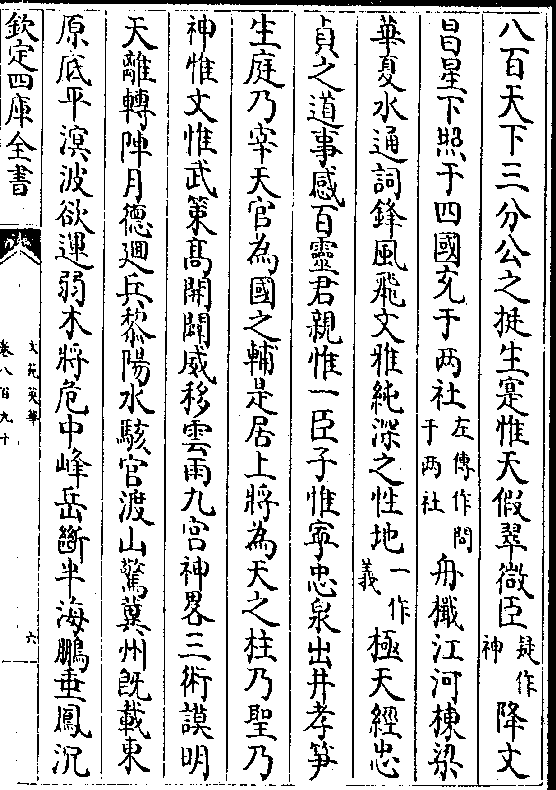 八百天下三分公之挺生寔惟天假翠微臣疑作神降文
昌星下照于四國充于两社左傳作間于两社舟檝江河棟梁
華夏水通詞鋒風飛文雅純深之性地一作義極天經忠
貞之道事感百靈君親惟一臣子惟寧忠泉出井孝笋
生庭乃宰天官為國之輔是居上將為天之柱乃聖乃
神惟文惟武策髙開闢威移雲雨九宫神畧三術謨明
天離轉陣月德廻兵黎陽水駭官渡山驚冀州旣載東
原底平溟波欲運弱木將危中峰岳斷半海鵬垂鳳沉
欽定四庫全書
文苑英華
卷八百九十
六